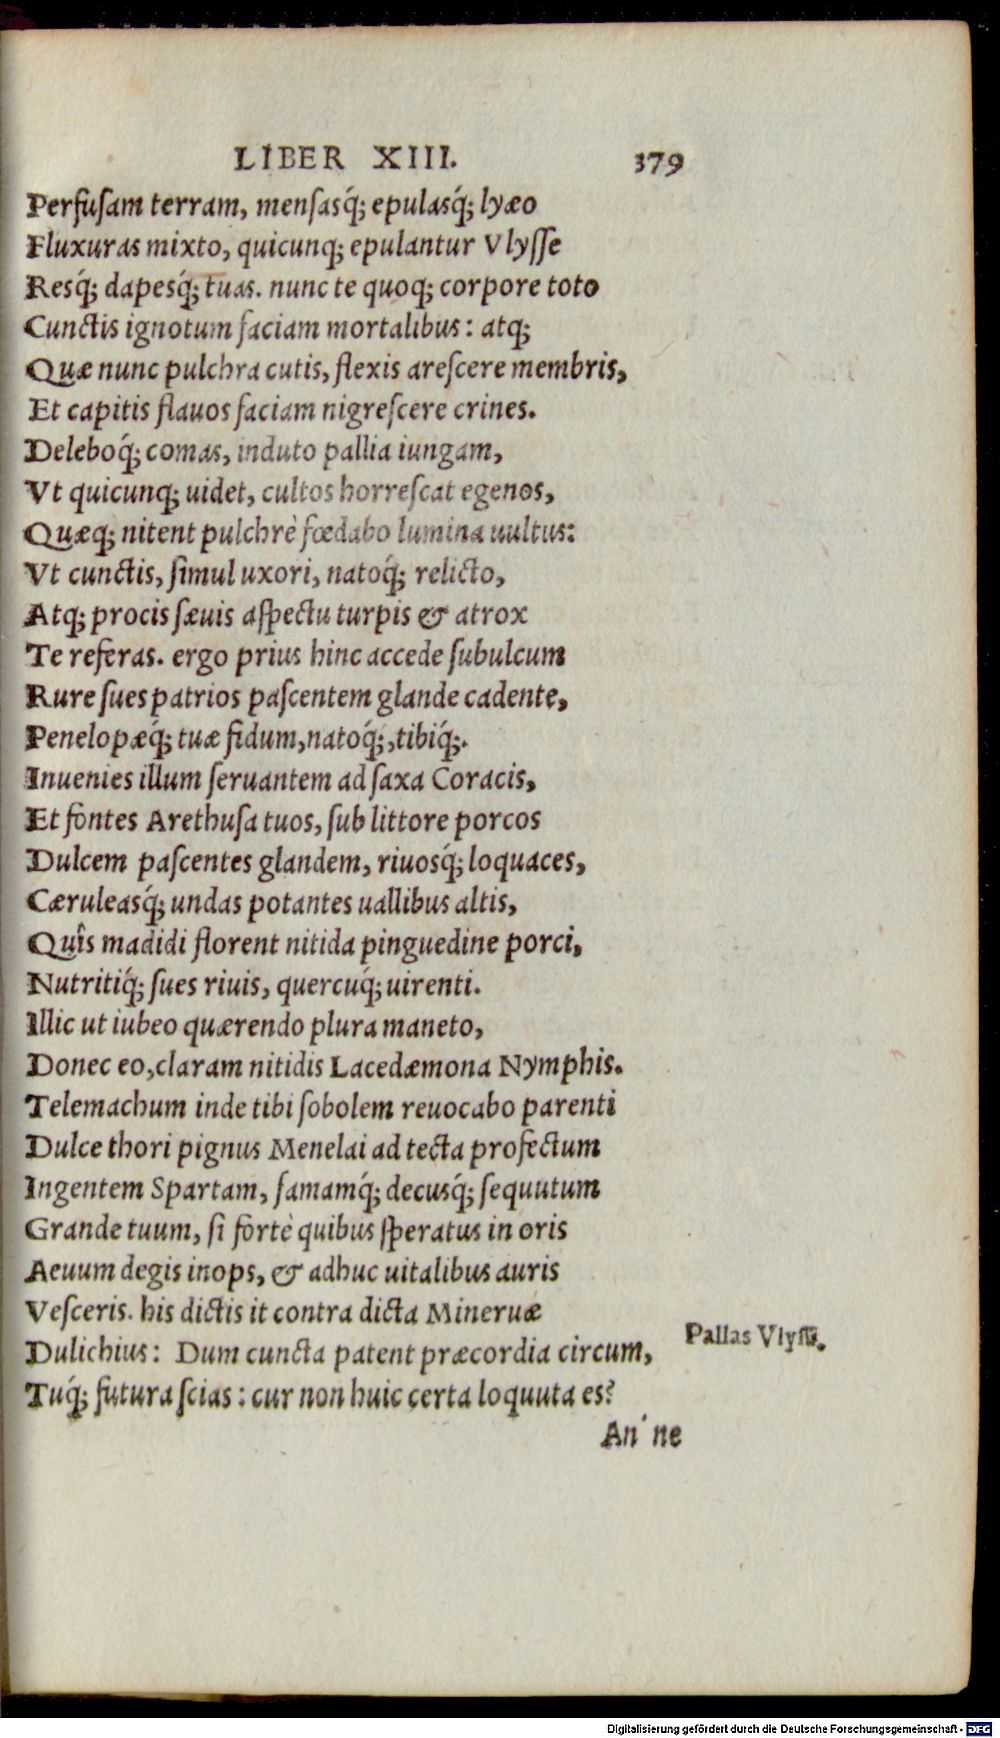 LIBER XIII. 379
Perfuſam terram, menſasq́; epulasq́; lyæo
Fluxuras mixto, quicunq; epulantur Vlyſſe
Resq́; dapesq́; tuas. nunc te quoq; corpore toto
Cunctis ignotum faciam mortalibus: atq;
Quæ nunc pulchra cutis, flexis areſcere membris,
Et capitis flauos faciam nigreſcere crines.
Deleboq́; comas, induto pallia iungam,
Vt quicunq; uidet, cultos horreſcat egenos,
Quæq; nitent pulchrè fœdabo lumina uultus:
Vt cunctis, ſimul uxori, natoq́; relicto,
Atq; procis ſæuis aſpectu turpis & atrox
Te referas. ergo prius hinc accede ſubulcum
Rure ſues patrios paſcentem glande cadente,
Penelopæq́; tuæ fidum, natoq́;, tibiq́;.
Inuenies illum ſeruantem ad ſaxa Coracis,
Et fontes Arethuſa tuos, ſub littore porcos
Dulcem paſcentes glandem, riuosq́; loquaces,
Cæruleasq́; undas potantes uallibus altis,
Quîs madidi florent nitida pinguedine porci,
Nutritiq́; ſues riuis, quercuq́; uirenti.
Illic ut iubeo quærendo plura maneto,
Donec eo, claram nitidis Lacedæmona Nymphis.
Telemachum inde tibi ſobolem reuocabo parenti
Dulce thori pignus Menelai ad tecta profectum
Ingentem Spartam, famamq́; decusq́; ſequutum
Grande tuum, ſi fortè quibus ſperatus in oris
Aeuum degis inops, & adhuc uitalibus auris
Veſceris. his dictis it contra dicta Mineruæ
Dulichius: Dum cuncta patent præcordia circum,
Pallas Vlyſſi.
Tuq́; futura ſcias: cur non huic certa loquuta es?
An' ne
Digitalisierung gefördert durch die Deutsche Forschungsgemeinschaft - DFG